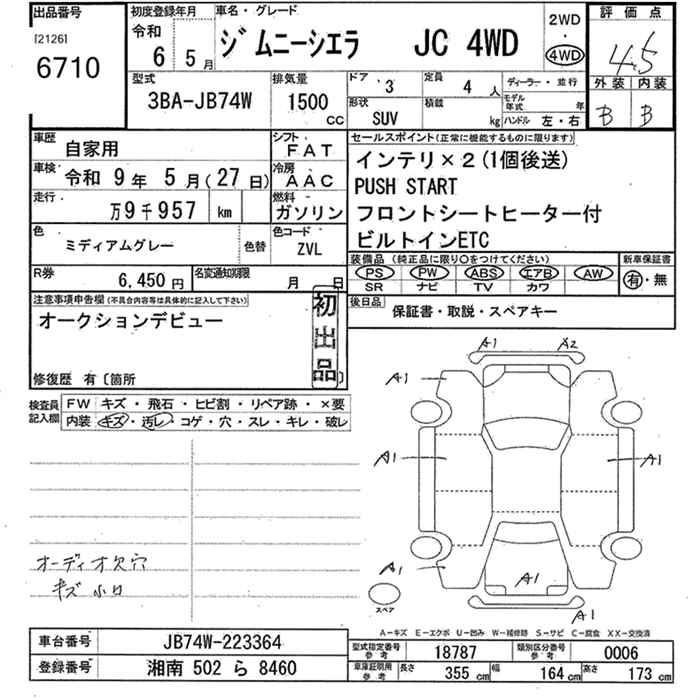 出品番号 初度登録年月 車名・グレード 2WD 評価点
[2126] 令和 6 5月 ジムニーシエラ JC 4WD ・ 4.5
6710 4WD
型式 排気量 ドア 3 定員 4人 ディーラー・並行 外装 内装
3BA-JB74W 1500cc 形状 SUV 積載 kg モデル年式 年 ハンドル 左・右 B B
車歴 自家用 シフト FAT セールスポイント(正常に機能するものに限ります)
車検 令和 9年 5月(27日) 冷房 AAC インテリ×2(1個後送)
走行 万9千957 km 燃料 ガソリン PUSH START
フロントシートヒーター付
色 ミディアムグレー 色替 色コード ZVL ビルトインETC
R券 6,450円 名変通知期限 月 日 装備品(純正品に限り○をつけてください) 新車保証書
PS PW ABS エアB AW 有・無
SR ナビ TV カワ
注意事項申告欄(不具合内容等は具体的に記入して下さい) 初出品 後日品 保証書・取説・スペアキー
オークションデビュー
修復歴 有〔箇所 〕
検査員記入欄 FW キズ・飛石・ヒビ割・リペア跡・×要
内装 キズ・汚レ・コゲ・穴・スレ・キレ・破レ
A1 A2
A1
A1 A1
オーディオ欠穴
キズ小口
A1
A1
A1
スペア
A-キズ E-エクボ U-凹み W-補修跡 S-サビ C-腐食 XX-交換済
車台番号 JB74W-223364 型式指定番号 参考 18787 類別区分番号 参考 0006
登録番号 湘南 502 ら 8460 車庫証明用 参考 長さ 355cm 幅 164cm 高さ 173cm